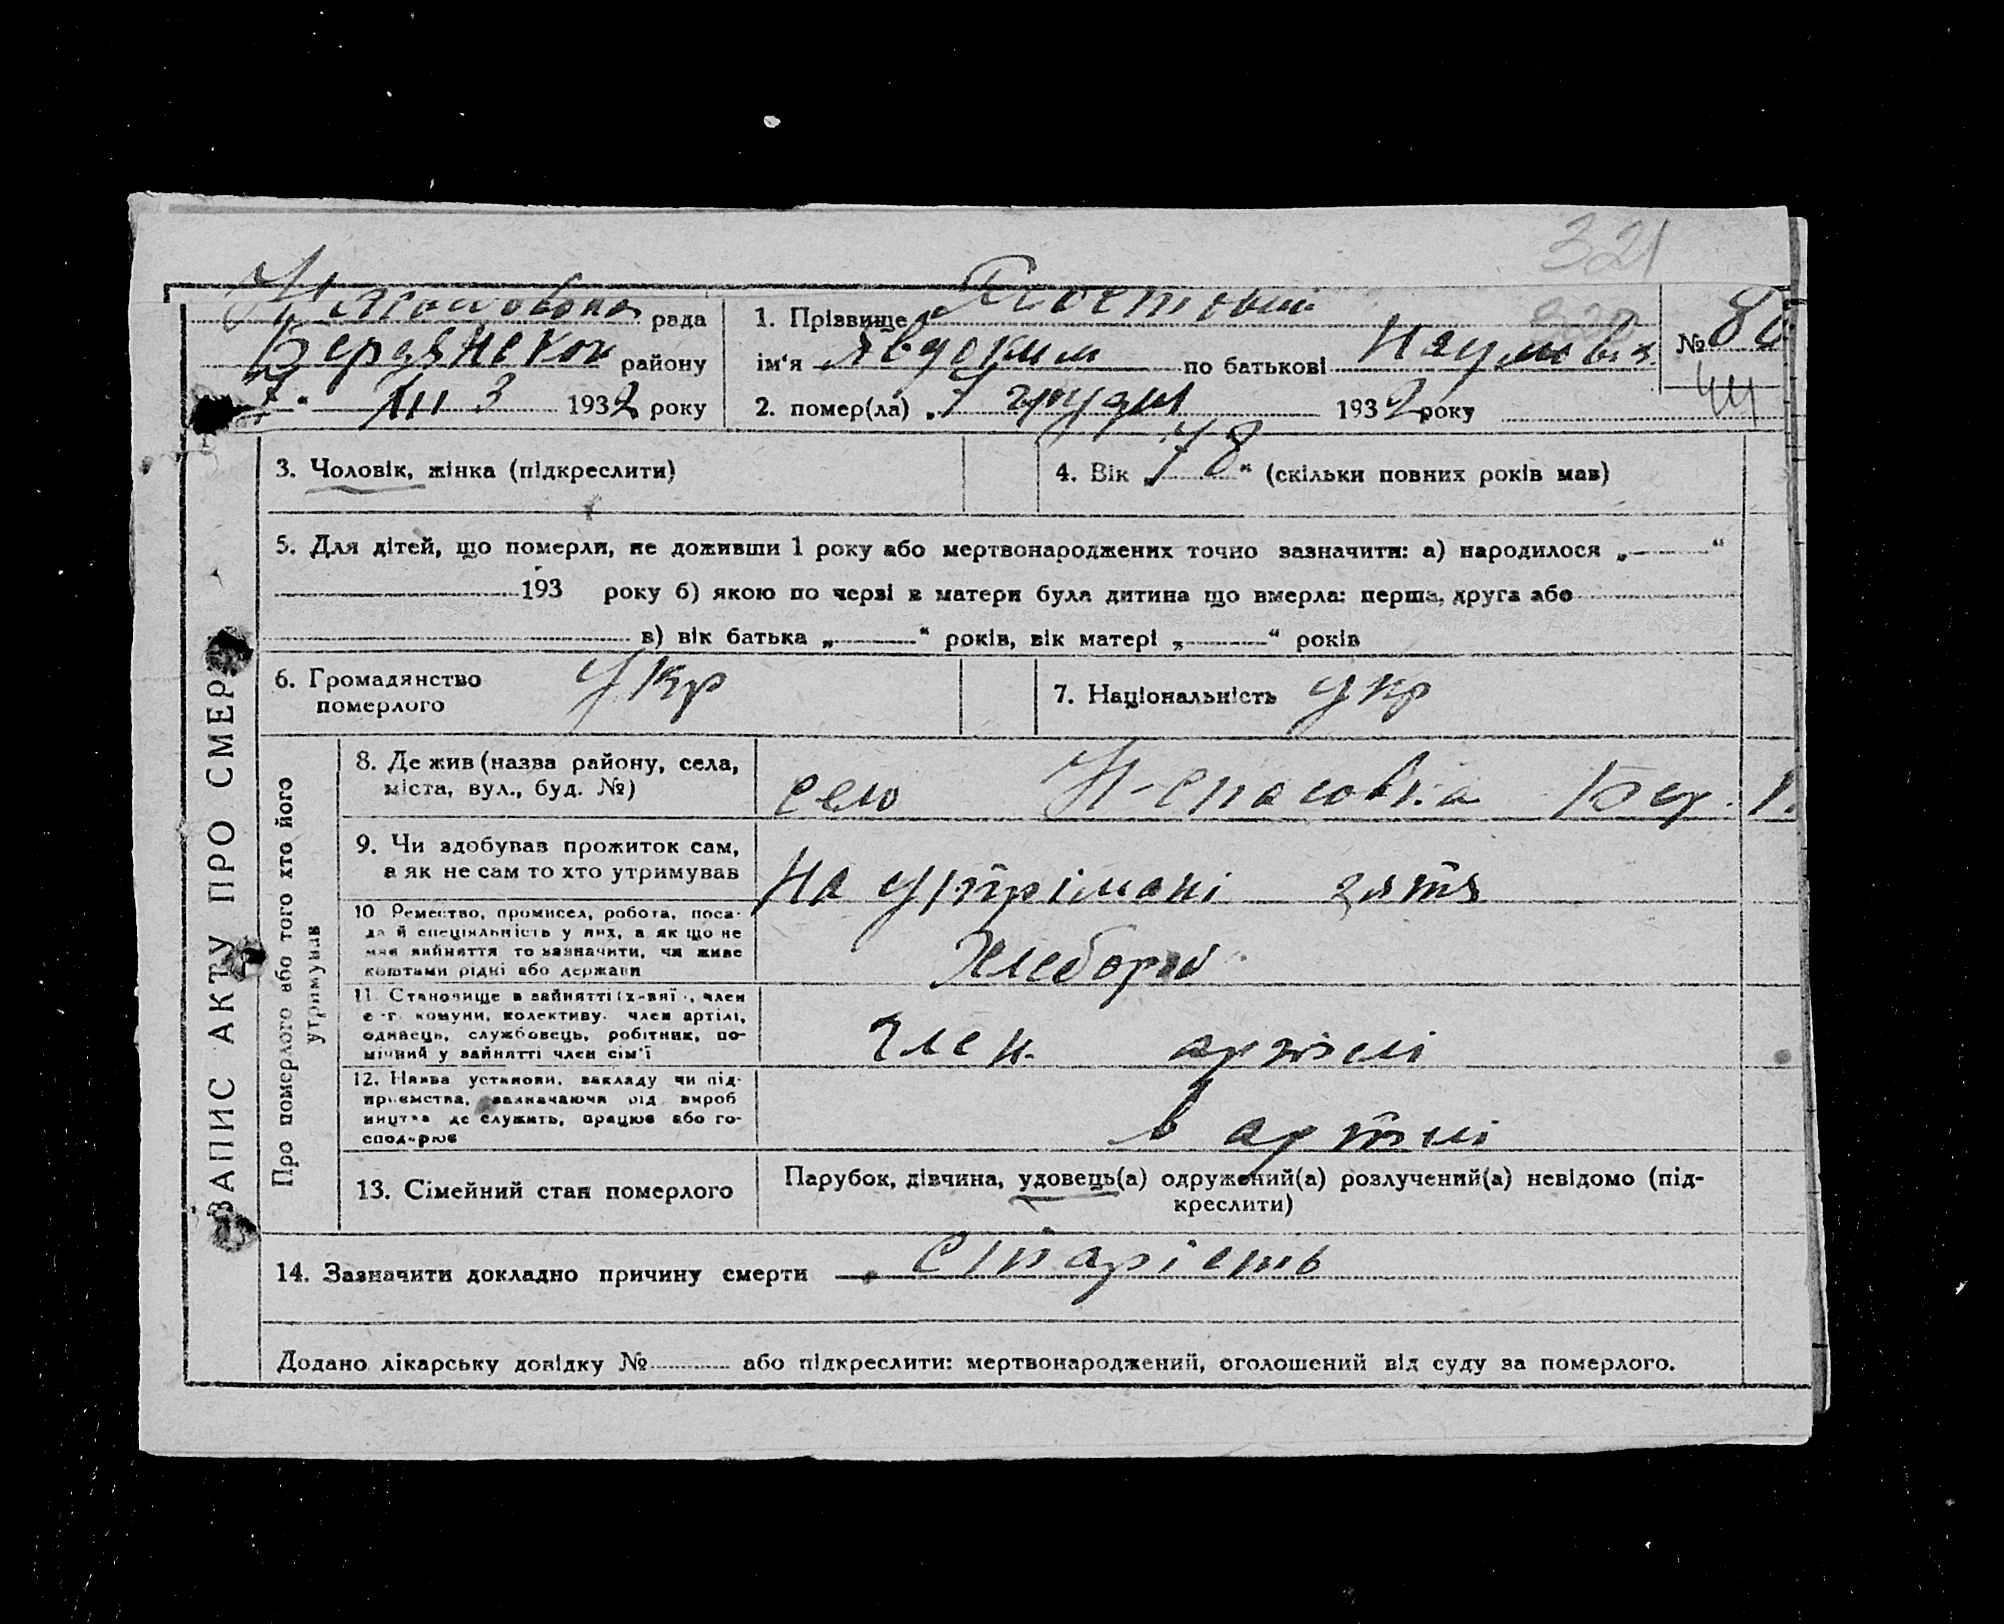 321
320
Н спасовска рада
Бердянског району
7 " XII 3 1932 року
1. Прізвище Постовий
ім'я Явдоким по батькові Наумовіч
2. помер(ла) „ 7 грудня 1932 року
№ 80
44
ЗАПИС АКТУ ПРО СМЕР
3. Чоловік, жінка (підкреслити)
4. Вік „ 78 “ (скільки повних років мав)
5. Для дітей, що померли, не доживши 1 року або мертвонароджених точно зазначити: а) народилося „ “
193 року б) якою по черзі в матери була дитина що вмерла: перша, друга або
в) вік батька „ “ років, вік матері „ “ років
6. Громадянство померлого укр
7. Національність укр
Про померлого або того хто його утримував
8. Де жив (назва району, села,
міста, вул., буд. №)
село Н-спасовка Бер. р.
9. Чи здобував прожиток сам,
а як не сам то хто утримував
на утрімані зятя
10 Ремество, промисел, робота, поса-
да й спеціяльність у них, а як що не
мав зайняття то зазначити, чи живе
коштами рідні або держави
хлебороб
11. Становище в зайнятті член
с-г. комуни, колективу. член артілі,
одинець, службовець, робітник, по-
мічний у зайнятті член сім'ї
член артілі
12. Назва установи, закладу чи під-
приємства, зазначаючи рід вироб
ництва де служить, працює або го-
сподарює
в артілі
13. Сімейний стан померлого
Парубок, дівчина, удовець(а) одружений(а) розлучений(а) невідомо (під-
креслити)
14. Зазначити докладно причину смерти старість
Додано лікарську довідку № або підкреслити: мертвонароджений, оголошений від суду за померлого.